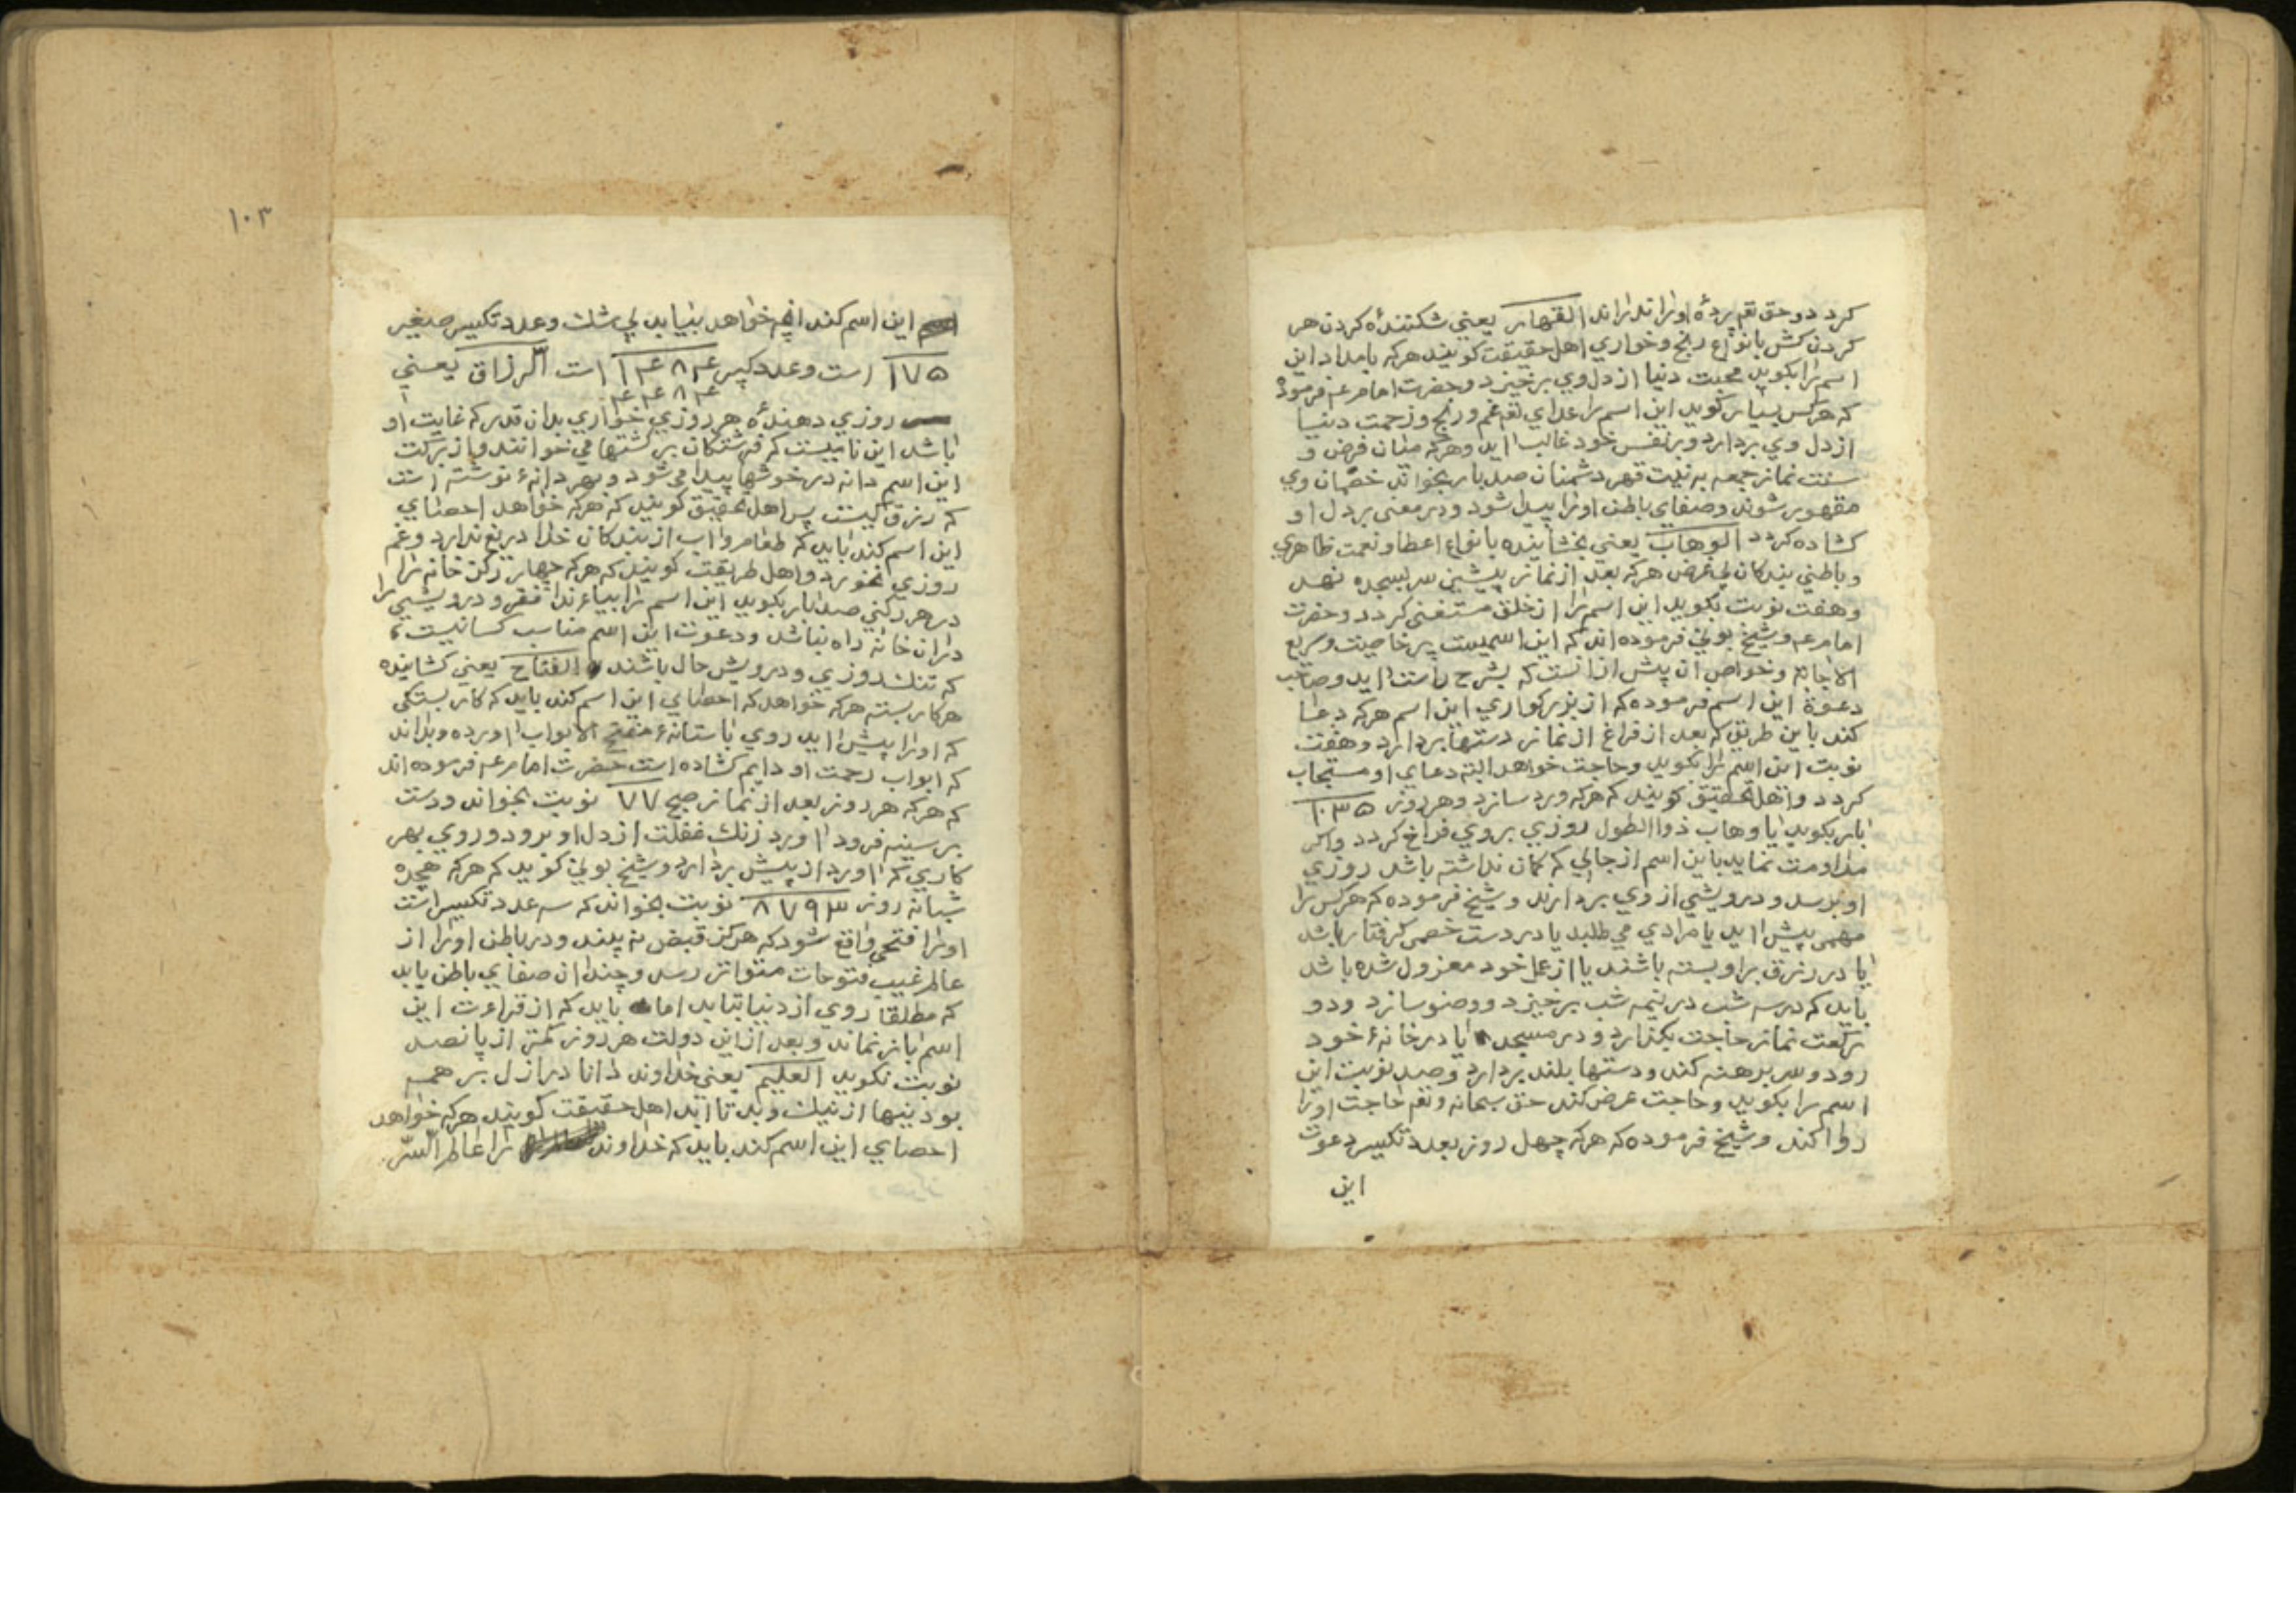 کردد و حق تعم پردهٔ او را ندراند القهار یعنی شکنندهٔ کردن هر
کردن کش بانواع رنج و خواری اهل حقیقت کویند هرکه بامداد این
اسم را بکوید محبت دنیا از دل وی برخیزد و حضرت امام عم فرموده
که هرکس بسیار کوید این اسم را خدای تعم غم و رنج و زحمت دنیا
از دل وی بردارد و بر نفس خود غالب اید و هرکه میان فرض و
سنت نماز جمعه به نیت قهر دشمنان صد بار بخواند خصمان وی
مقهور شوند و صفای باطن او را پیدا شود و در معنی بر دل او
کشاده کردد الوهاب یعنی بخشاینده بانواع اعطا و نعمت ظاهری
و باطنی بندکان بی غرض هرکه بعد از نماز پیشین سر بسجده نهد
و هفت نوبت بکوید این اسم را از خلق مستغنی کردد و حضرت
امام عم و شیخ بونی فرموده اند که این اسمیست پر خاصیت و سریع
الاجابة و خواص ان پیش از انست که بشرح راست اید و صاحب
دعوة این اسم فرموده که از بزرکواری این اسم هرکه دعا
کند باین طریق که بعد از فراغ از نماز دستها بردارد و هفت
نوبت این اسم را بکوید و حاجت خواهد البته دعای او مستجاب
کردد و اهل تحقیق کویند که هرکه ورد سازد و هر روز ۱۰۳۵
بار بکوید یا وهاب ذوا الطول روزی بروی فراخ کردد و اکر
مداومت نماید باین اسم از جائی که کمان نداشته باشد روزی
او برسد و درویشی از وی بردارند و شیخ فرموده که هرکس را
مهمی پیش اید یا مرادی می طلبد یا در دست خصمی کرفتار باشد
یا در رزق بر او بسته باشند یا از عمل خود معزول شده باشد
باید که در سه شب در نیمه شب برخیزد و وضو سازد و دو
رکعت نماز حاجت بکذارد و در مسجد یا در خانهٔ خود
رود و سر برهنه کند و دستها بلند بردارد و صد نوبت این
اسم را بکوید و حاجت عرض کند حق سبحانه و تعم حاجت او را
روا کند و شیخ فرموده که هرکه چهل روز بعدد تکسیر دعوت
این
۱۰۳
این اسم کند انچه خواهد بیابد بی شک و عدد تکسیر صغیر
۱۷۵ است و عدد کبیر ۱۴۸۴ است الرزاق یعنی
۴۴۸۴
روزی دهندهٔ هر روزی خواری بدان قدر که غایت او
باشد این نامیست که فرشتکان بر کشتها می خوانند و از برکت
این اسم دانه در خوشها پیدا می شود و بهر دانهٔ نوشته است
که رزق کیست پس اهل تحقیق کویند که هرکه خواهد احصای
این اسم کند باید که طعام و اب از بندکان خدا دریغ ندارد و غم
روزی نخورد و اهل طریقت کویند که هرکه چهار رکن خانه را
در هر رکنی صد بار بکوید این اسم را بیاء ندا فقر و درویشی را
دران خانه راه نباشد و دعوت این اسم مناسب کسانیست
که تنک روزی و درویش حال باشند الفتاح یعنی کشاینده
هر کار بسته هرکه خواهد که احصای این اسم کند باید که کار بستکی
که او را پیش اید روی باستانهٔ مفتح الابواب اورده و بداند
که ابواب رحمت او دایم کشاده است حضرت امام عم فرموده اند
که هرکه هر روز بعد از نماز صبح ۷۷ نوبت بخواند و دست
بر سینه فرود اورد زنک غفلت از دل او برود و روی بهر
کاری که اورد از پیش بردارد و شیخ بونی کوید که هرکه هجده
شبانه روز ۸۷۹۳ نوبت بخواند که سه عدد تکسیر است
او را فتحی واقع شود که هرکز قبض نه بیند و در باطن او را از
عالم غیب فتوحات متواتر رسد و چندان صفای باطن یابد
که مطلقا روی از دنیا بتابد اما باید که از قراءت این
اسم باز نماند و بعد از این دولت هر روز کمتر از پانصد
نوبت نکوید العلیم یعنی خداوند دانا در ازل بر همه
بودنیها از نیک و بد تا ابد اهل حقیقت کویند هرکه خواهد
احصای این اسم کند باید که خداوند را عالم السّر